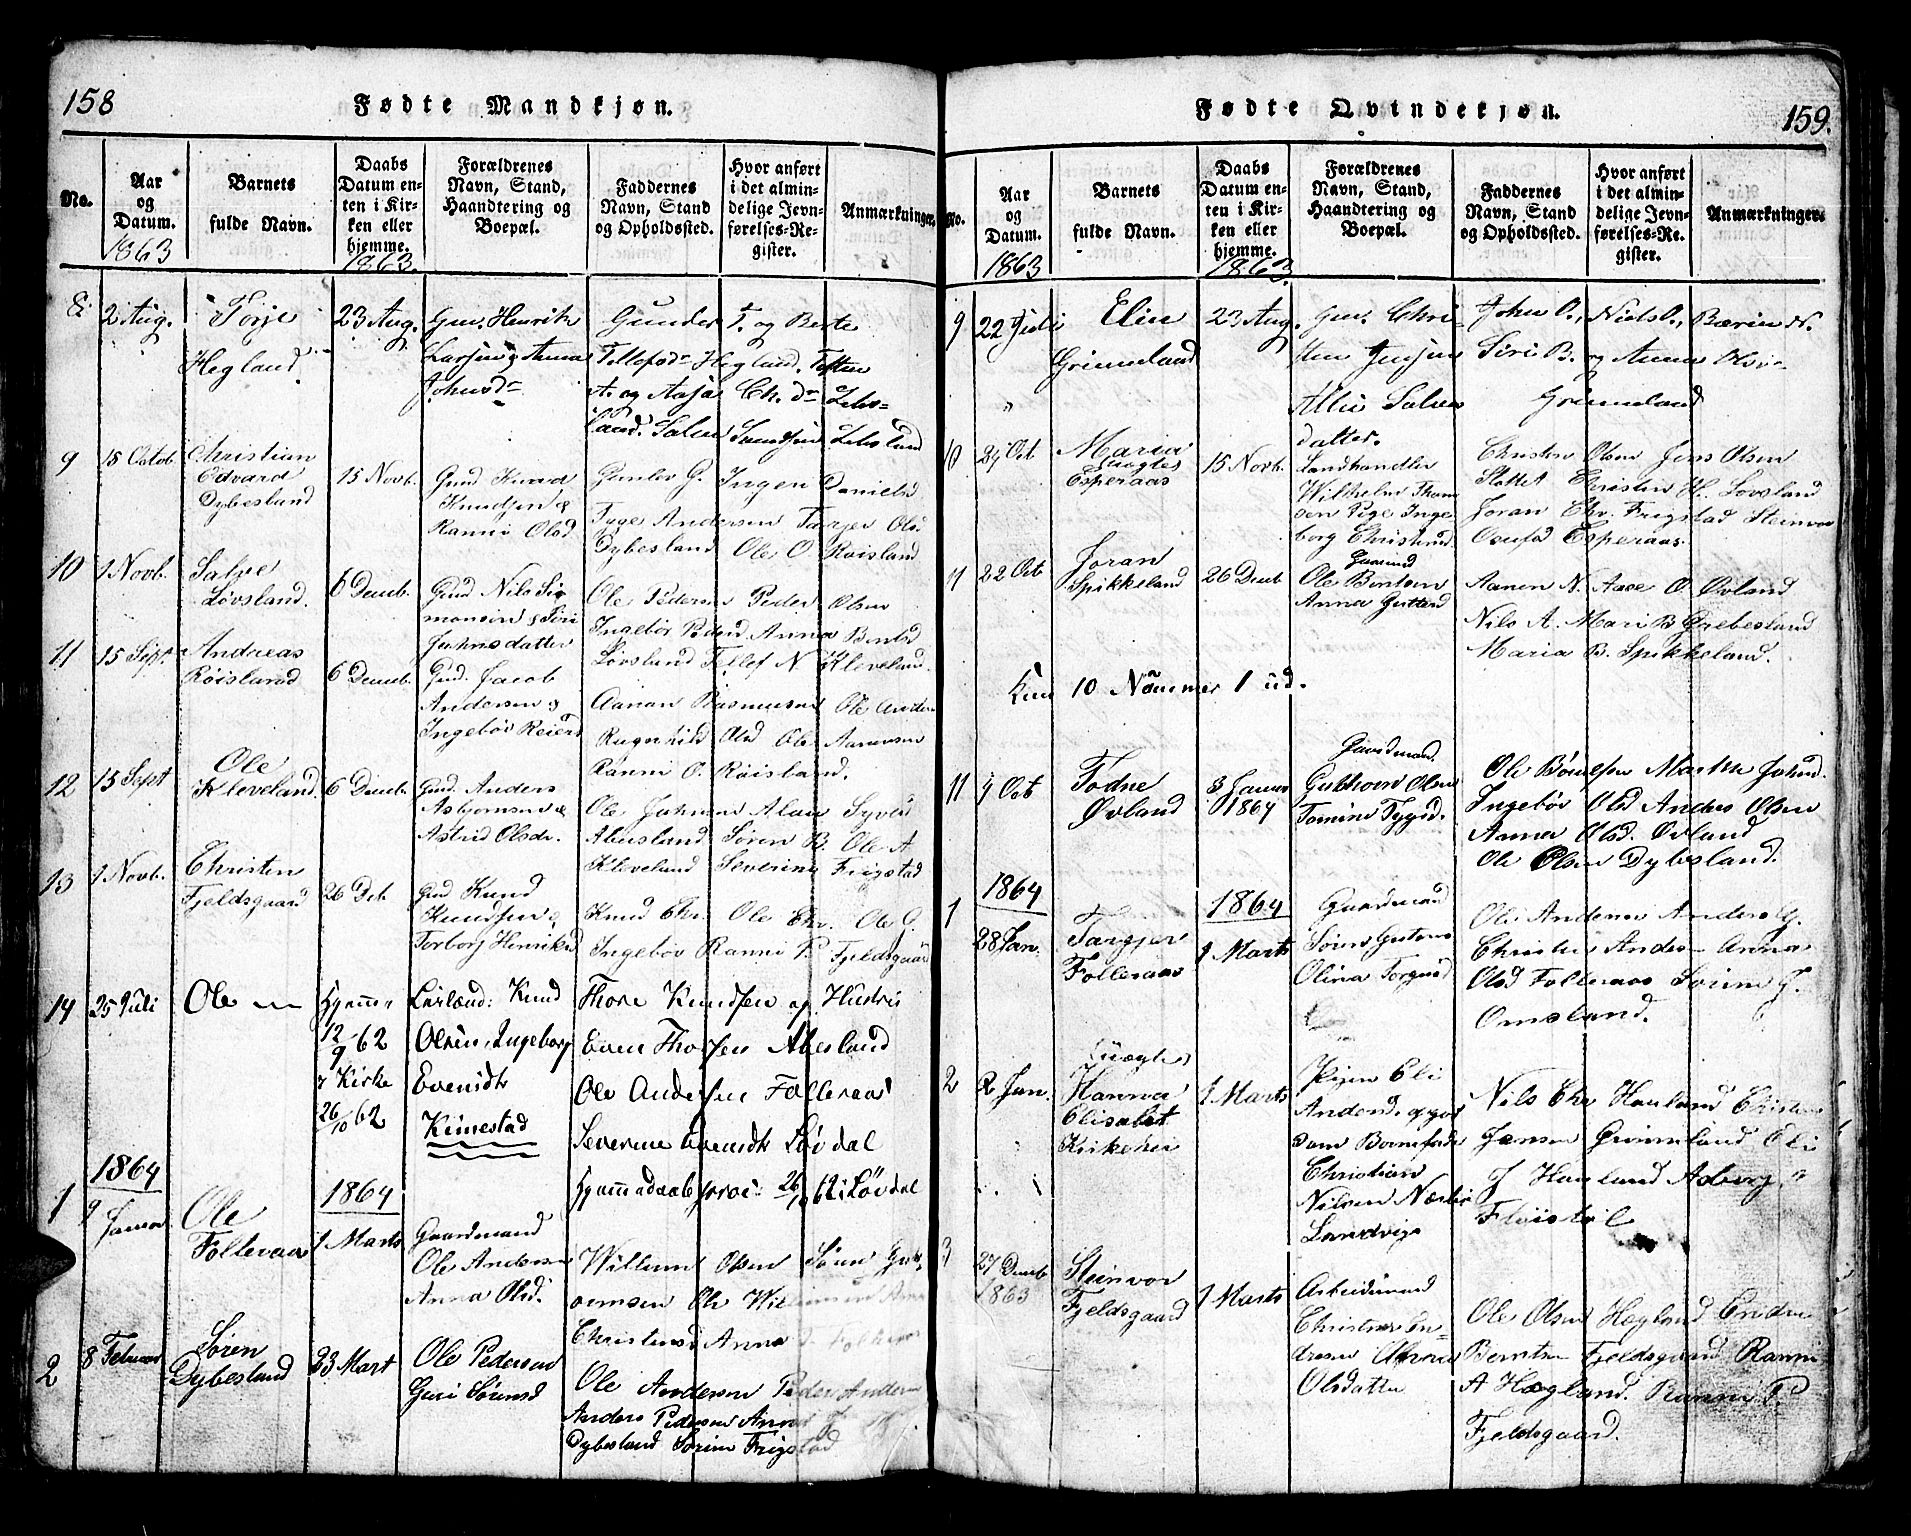 158
Fødte Mandkjøn.
No.
Aar og Datum.
1863
Barnets fulde Navn.
Daabs Datum enten i Kirken eller hjemme.
1863.
Forældrenes Navn, Stand, Haandtering og Boepæl.
Faddernes Navn, Stand og Opholdssted.
Hvor anført i det almindelige Jevnførelses-Register.
Anmærkninger.
8
2 Aug.
Torje
Hegland
23 Aug.
Gm. Henrik
Larsen og Anna
Johnsdr
Gunder T. og Berte
Tellefsdr Hegland, Tosten
A. og Aasa Ch. dr Lihs-
land. Salve Svendsen
9
15 Octob
Christian
Edvard
Dybesland
15 Novb.
Gmd Knud
Knudsen &
Ranni Olsd
Gunlov G. Ingen Daniels
Tyge Andersen Tarjer Ols
Dybesland Ole O. Roisland
10
1 Novb.
Salve
Løvsland.
6 Decmb.
Gmd Nils Si
monsen & Siri
Johnsdatter
Ole Peders Peder Olsen
Ingebor Pedersd Anna Bentsd
Løvsland Tellef N Kleveland.
11
15 Sept.
Andreas
Røisland
6 Decmb.
Gmd. Jacob
Andersen &
Ingebor Reiers
Aanon Rasmusen Ole Anders
Ragnhild Olsd Ole Aanensen
Ranni O. Roisland.
12
15 Sept
Ole
Kleveland.
6 Decmb
Gmd. Anders
Asbjornsen &
Astrid Olsdr.
Ole Johnsen Alau Syverts
Abusland Søren B. Ole A
Kleveland Severine Frigstad
13
1 Novb.
Christen
Fjeldsgaard
26 Deb
Gmd Knud
Knudsen &
Torborg Henriksd
Knud Chr. Ole Chr. Ole G.
Ingebor Ranni P. Fjeldsgaard
14
25 Juli
Ole
Hjemme
12/9 62
i Kirke
26/10 62
Knud
Olsen, Ingeborg
Evensdtr
Kimestad
Thore Knudsen og Hustru
Even Thorsen Abesland
Ole Andersen Folleraas
Severine Evensdtr Løvdal
26/10 62 i Løvdal
1864
1
9 Januar
Ole
Folleraas
1864
1 Marts
Gaardmand
Ole Andersen
Anna Olsd.
Willum Olsen Sören Gut-
ormsen Ole
Christensd Anna
2
8 Februar
Søren
Dybesland
23 Mart
Ole Pedersen
Guri Sörensd
Ole Andersen Peder Anders
Anders Pedersen Anna
Dybesland Sørine Frigstad
159.
Fødte Qvindekjøn.
No.
Aar og Datum.
1863
Barnets fulde Navn.
Daabs Datum enten i Kirken eller hjemme.
1863.
Forældrenes Navn, Stand, Haandtering og Boepæl.
Faddernes Navn, Stand og Opholdssted.
Hvor anført i det almindelige Jevnførelses-Register.
Anmærkninger.
9
22 Juli
Elin
Grimeland
23 Aug.
Gm. Chri-
sten Jensen
Allis Salve
datter.
John O., Niels O., Bærin N.
Siri B. og Anna Ols-
Grimeland
10
24 Oct.
Maria
uægtes
Esperaas
15 Novb.
Landhandler
Wilhelm Thom
sen Pige Inge
borg Christensd
Christen Olsen Jens Olsen
Slottet Christen H. Lovsland
Joran Chr. Frigstad Steinvor
Osufsd Esperaas.
11
22 Oct
Joran
Spikkeland
26 Decmb
Gaarmd
Ole Bentsen
Anna Guttersd
Aanen N. Aase O. Øvland
Nils A. Mari B. Grebesland
Maria B. Spikkeland.
Kun 10 Nommer 1 ud.
11
9 Oct
Todne
Øvland
3 Januar
1864
Gaardmand.
Gutthorm Olsen
Tomine Tygesd.
Ole Börufsen Marthe Johnsd.
Ingebör Olsd Anders Olsen
Aanna Olsd. Øvland
Ole Olsen Dybesland.
1864
1
28 Jan.
Targjer
Folleraas
1864
1 Marts
Gaardmand
Sören Guttorms
Olina Torgusd
Ole Andersen Anders G.
Christen Anders- Anna
Olsd Folleraas Sörine G.
Omsland.
2
2 Jan.
(uægte)
Hanna
Elisabet
Kirkehei
1 Marts
Pigen Eli
Andersd. opgivet
som Barnefader
Christian
Nilsen
Landvige
Nils Chr Hauland Christen
Jensen Grimeland Eli
J Hauland Asborg
Flöistöl
3
27 Decmb
1863
Steinvor
Fjeldsgaard
1 Marts
Arbeidsmand
Christen En-
dresen Anna
Olsdatter
Ole Olsen Hægland Endre
Berntsen Fjeldsgaard Ranni
A Hægland. Ranni P.
Fjeldsgaard.